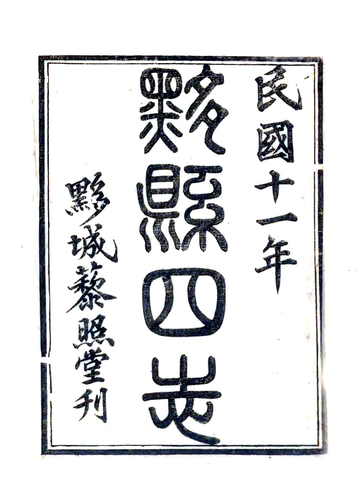 民國十一年
黟縣四志
黟城藜照堂刊